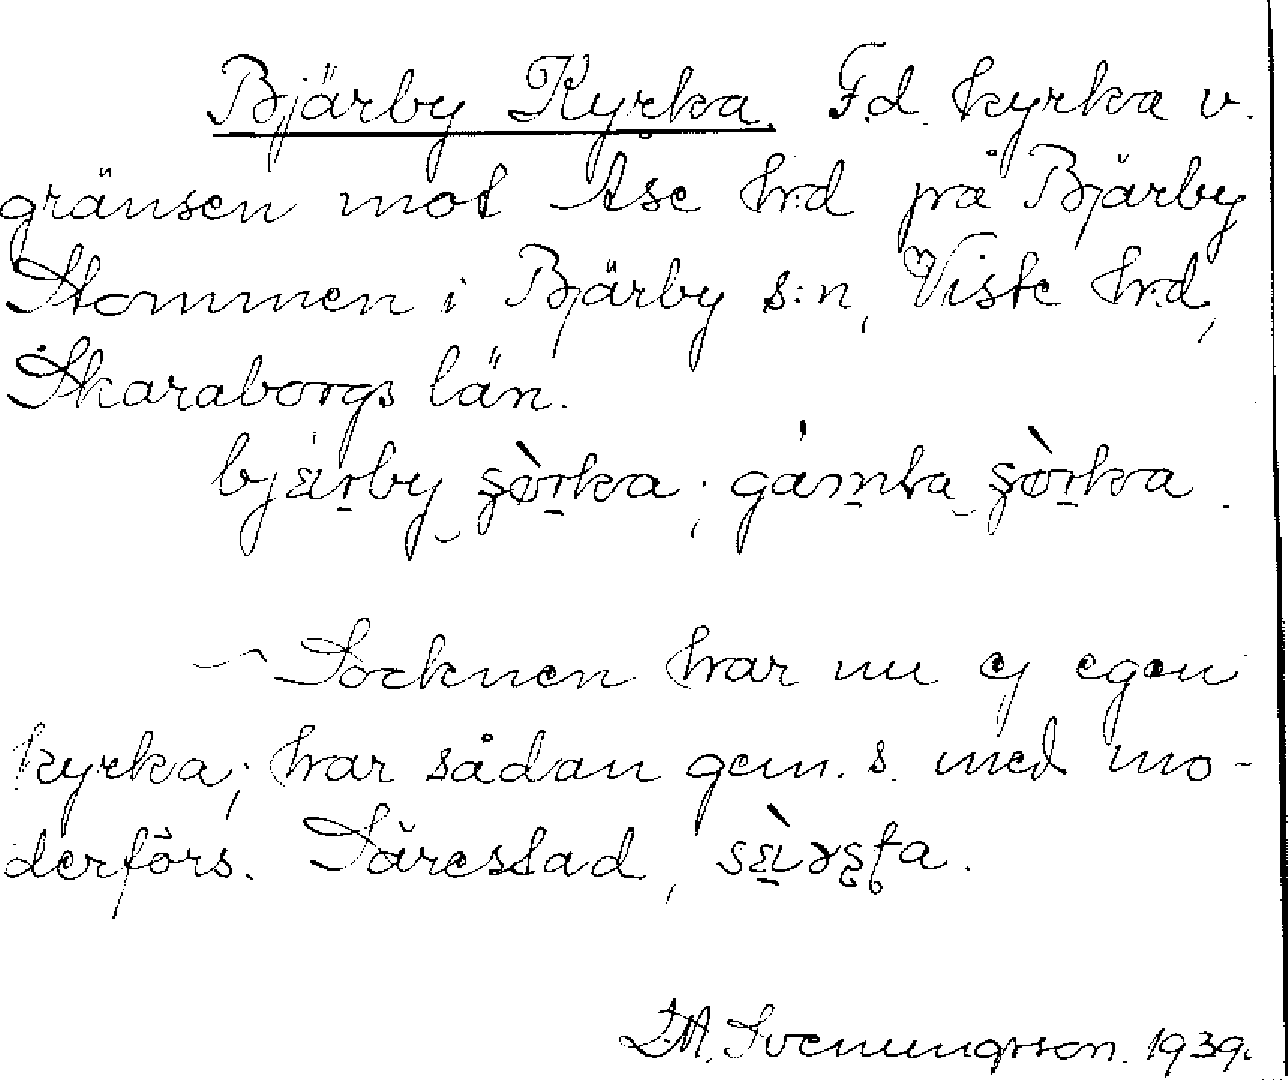 Bjärby Kyrka. F.d. kyrka v.
gränsen mot Åse hrd på Bjärby
Stommen i Bjärby s:n, Viste hrd,
Skaraborgs län.
bjärby kyrka; gamla kyrka.
Socknen har nu ej egen
kyrka; har sådan gem. s. med mo-
derförs. Särestad,
Svenungsson. 1939.